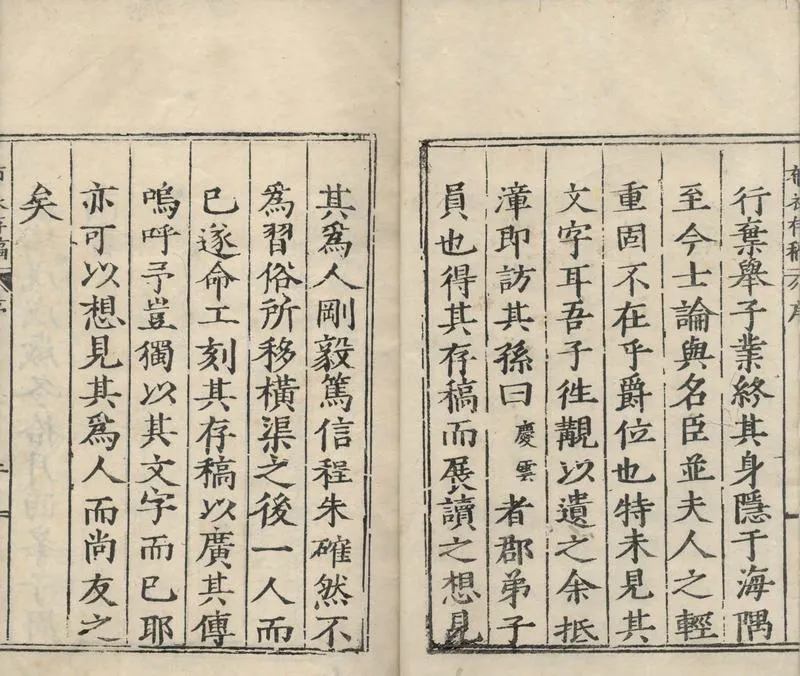 行棄舉子業終其身隱于海隅
至今士論與名臣並夫人之輕
重固不在乎爵位也特未見其
文字耳吾子徃覯以遺之余抵
漳即訪其孫曰慶雲者郡弟子
員也得其存稿而展讀之想見
其爲人剛毅篤信程朱確然不
爲習俗所移橫渠之後一人而
已遂命工刻其存稿以廣其傳
嗚呼予豈獨以其文字而已耶
亦可以想見其爲人而尚友之
矣